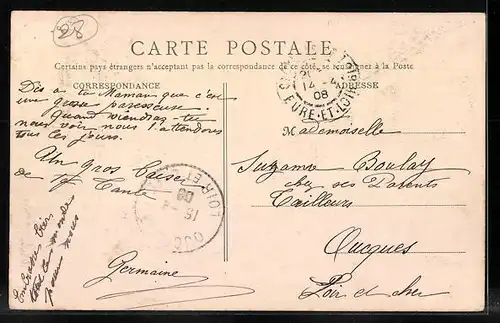 28
CARTE POSTALE
Certains pays étrangers n'acceptant pas la correspondance de ce côté, se renseigner à la Poste
CORRESPONDANCE
ADRESSE
14 -4
08
EURE-ET-LOIR
Dis a ta Maman que c'est
une grosse paresseuse.
Quand viendras-tu
nous voir nous t'attendons
tous les jours.
Un gros baiser
de ta Tante
Germaine
Embrasses bien
tout le monde
pour nous
Mademoiselle
Suzanne Boulay
chez ses Parents
Tailleurs
Oucques
Loir et cher
15 -4
08
LOIR-ET-